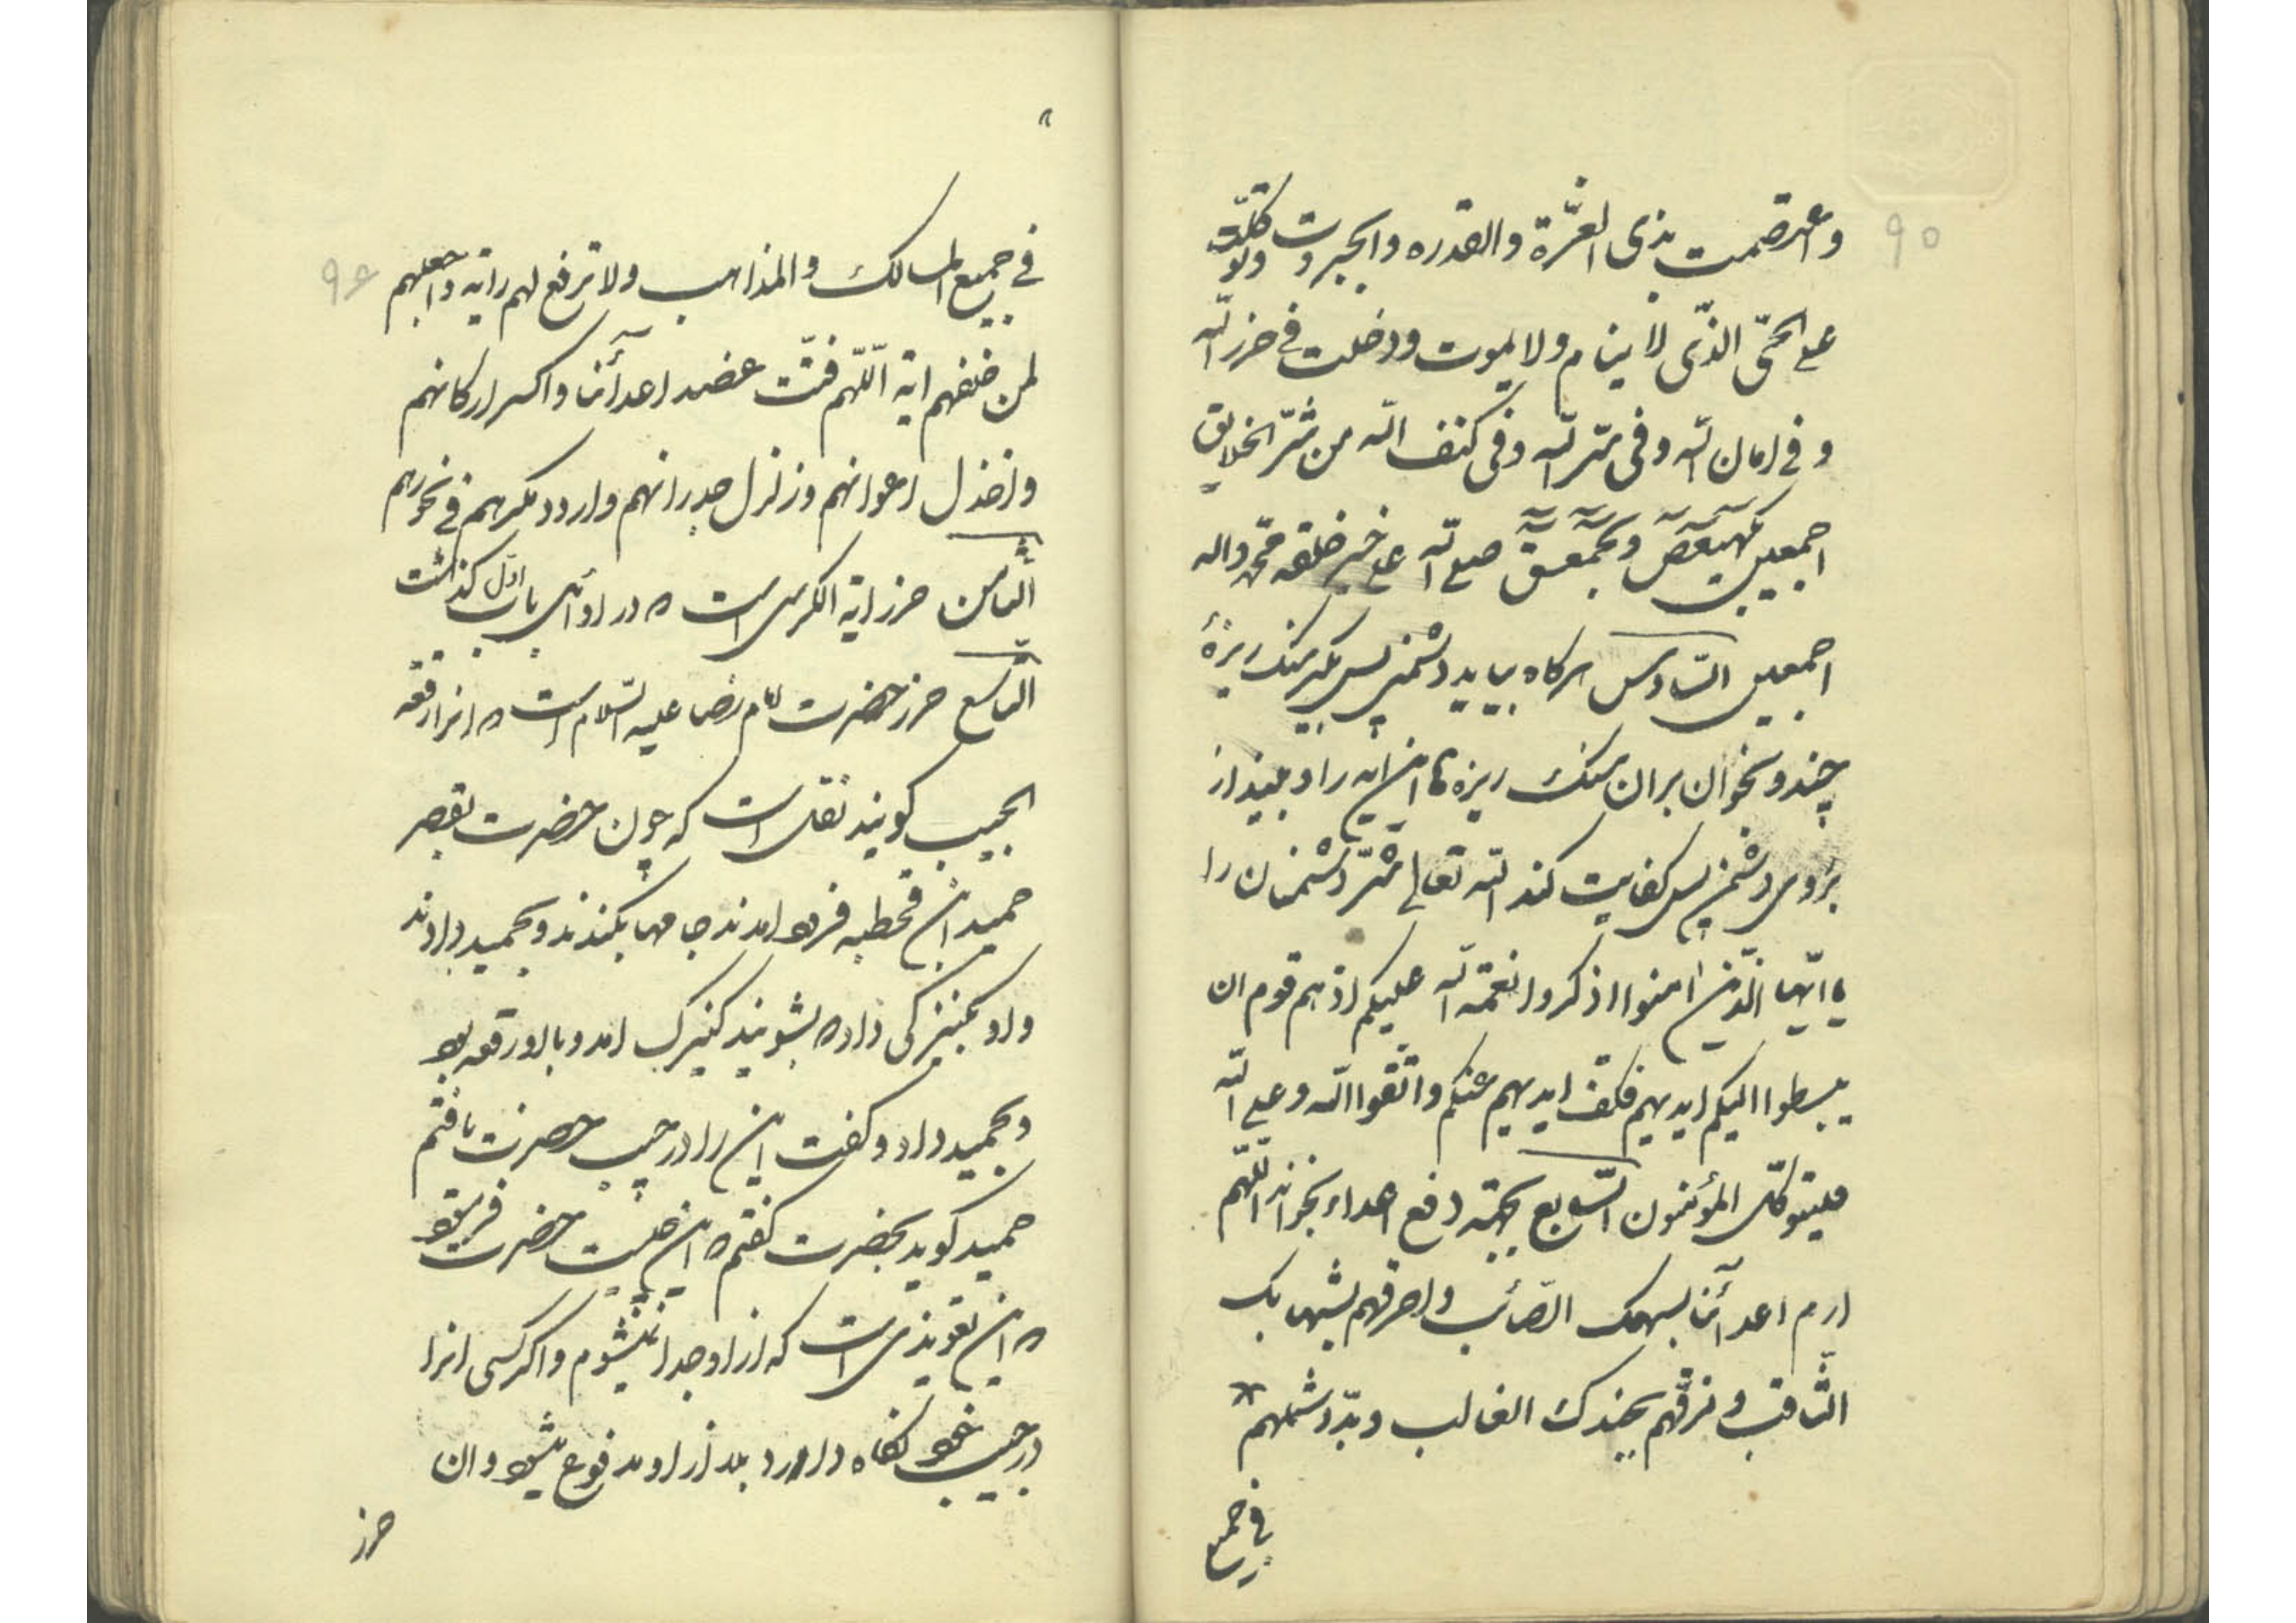 ۹۵
واعتصمت بذی العزّة والقدره والجبروت وتوکلّت
علی الحیّ الذّی لا ینام ولا یموت ودخلت فی حرز الله
و فی امان الله وفی ستر الله وفی کنف الله من شرّ الخلایق
اجمعین کهیعص وحمعسق صلی الله علی خیر خلقه محمّد واله
اجمعین السّادس هرکاه بیاید دشمن پس بکیر سنک ریزهٔ
چند و بخوان بران سنک ریزه ها این ایه را و بینداز
بروی دشمن پس کفایت کند الله تعالی شرّ دشمنان را
یا ایّها الّذین امنوا اذکروا نعمة الله علیکم اذ هم قوم ان
یبسطوا الیکم ایدیهم فکفّ ایدیهم عنکم واتّقوا الله وعلی الله
فلیتوکّل المؤمنون السّابع بجهة دفع اعداء بخواند اللّهم
ارم اعدآئنا بسهمک الصّائب واحرقهم بشهابک
الثّاقب و فرّقهم بجندک الغالب وبدّد شملهم
فی جمیع
۹۶
فی جمیع المسالک والمذاهب ولا ترفع لهم رایه واجعلهم
لمن خلفهم ایة اللّهم فتّت عضد اعدآئنا واکسر ارکانهم
واخذل اعوانهم وزلزل جدرانهم واردد مکرهم فی نحورهم
الثّامن حرز ایة الکرسی است که در اوائل باب اوّل کذشت
التّاسع حرز حضرت امام رضا علیه السّلام است که انرا رقعه
الجیب کویند نقل است که چون حضرت بقصر
حمید ابن قحطبه فرود امدند جامها بکندند وبحمید دادند
واو بکنیزکی داد که بشویند کنیزک امد وبا او رقعه بود
وبحمید داد و کفت این را در جیب حضرت یافتم
حمید کوید بحضرت کفتم که این چیست حضرت فرمود
که این تعویذی است که از او جدا نمیشوم واکر کسی انرا
در جیب خود نکاه دارد بلا از او مدفوع میشود وان
حرز